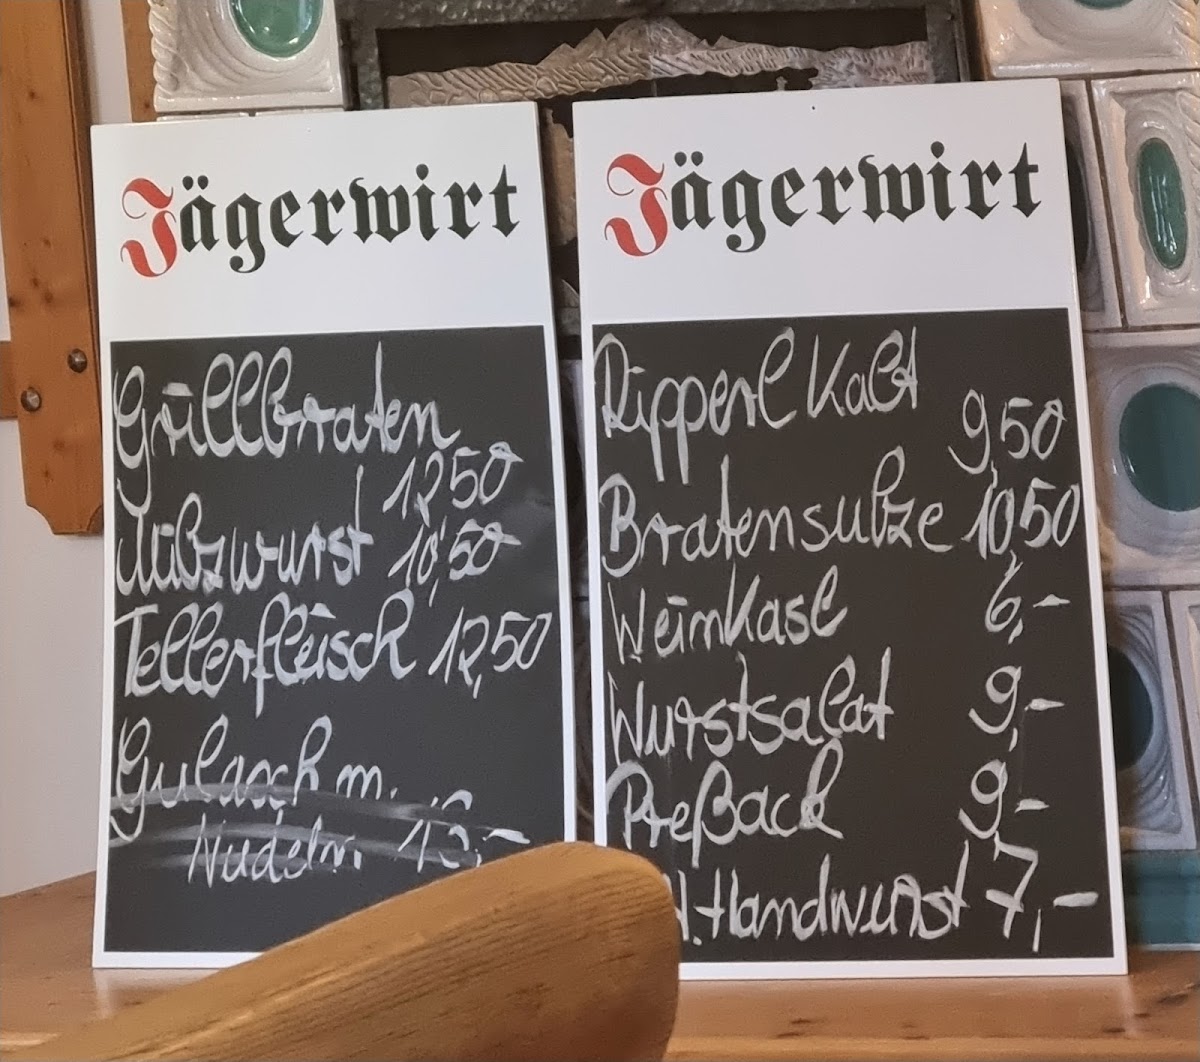 Jägerwirt
Grillbraten
12,50
Milzwurst 10,50
Tellerfleisch 12,50
Gulasch m.
Nudeln 13,-
Jägerwirt
Ripperl Kalt
9,50
Bratensulze 10,50
Weinkasl 6,-
Wurstsalat 9,-
Preßack 9,-
Handwurst 7,-